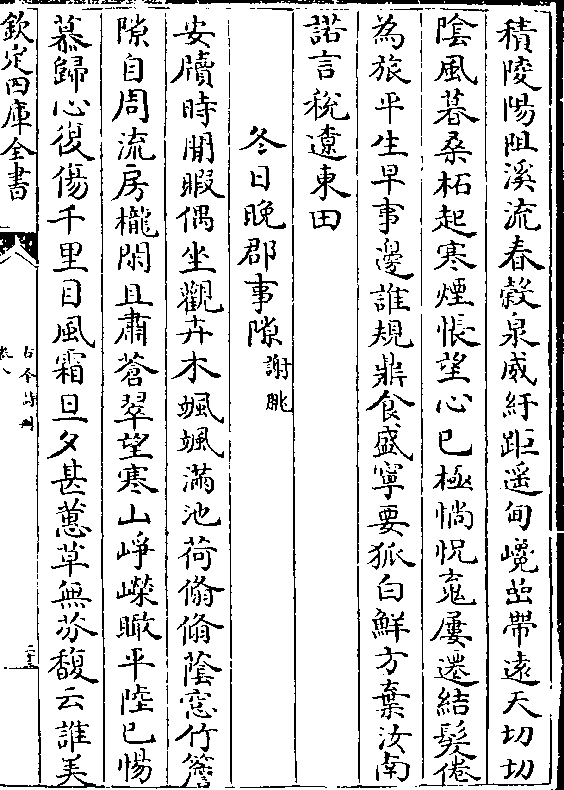 積陵陽阻溪流春穀泉威紆距遥甸巉嵒帶遠天切切
陰風暮桑柘起寒煙悵望心已極惝怳䰟屢遷結髪倦
為旅平生早事邊誰規鼎食盛寧要狐白鮮方棄汝南
諾言税遼東田
冬日晚郡事隙謝朓
安牘時閒暇偶坐觀卉木颯颯滿池荷翛翛蔭窓竹簷
隙自周流房櫳閑且肅蒼翠望寒山崢嶸瞰平陸已惕
慕歸心復傷千里目風霜旦夕甚蕙草無芬馥云誰美
欽定四庫全書
卷八